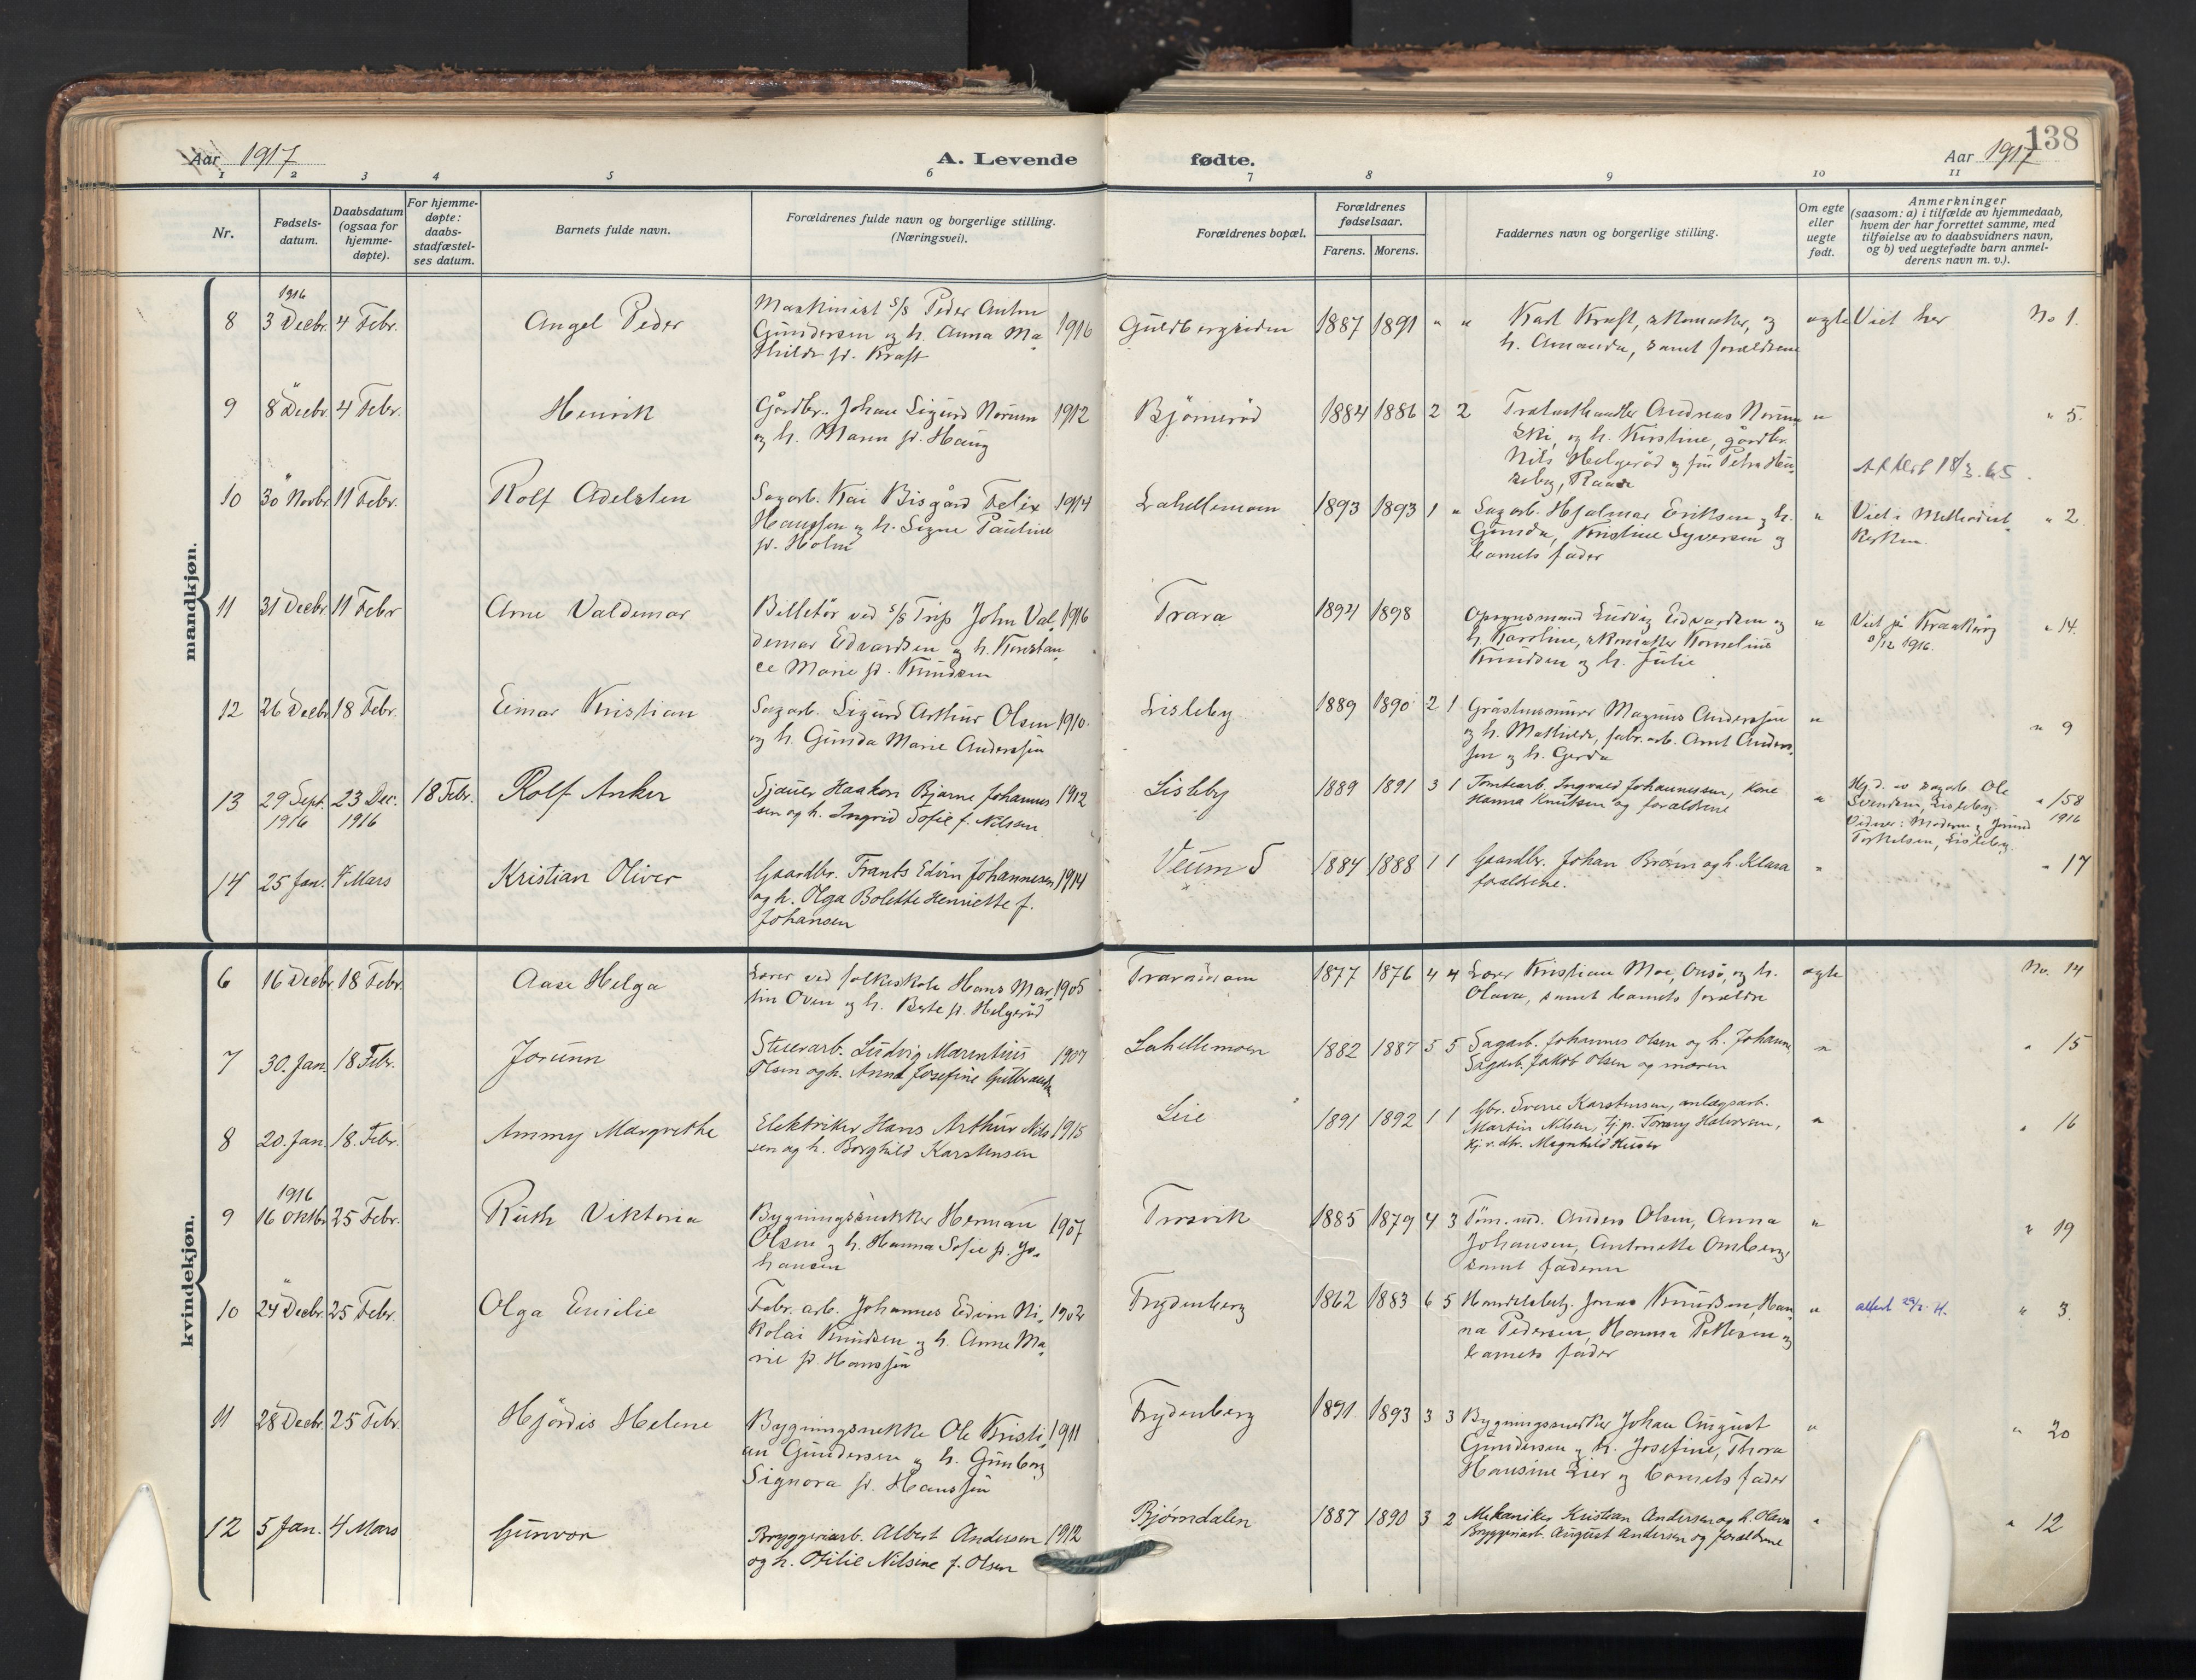 138
Aar 1917
A. Levende
fødte.
Aar 1917
1 2 3 4 5 6 7 8 9 10 11
Nr.
Fødsels-
datum.
Daabsdatum
(ogsaa for
hjemme-
døpte).
For hjemme-
døpte:
daabs-
stadfæstel-
ses datum.
Barnets fulde navn.
Forældrenes fulde navn og borgerlige stilling.
(Næringsvei).
Forældrenes bopæl.
Forældrenes
fødselsaar.
Farens. Morens.
Faddernes navn og borgerlige stilling.
Om egte
eller
uegte
født.
Anmerkninger
(saasom: a) i tilfælde av hjemmedaab,
hvem der har forrettet samme, med
tilføielse av to daabsvidners navn,
og b) ved uegtefødte barn anmel-
derens navn m. v.).
mandkjøn.
1916
8 3 Decbr. 4 Febr. Angel Peder
Maskinist s/s Peder Anton
Gundersen og h. Anna Ma-
thilde f. Kraft
1916 Guldbergsiden 1887 1891 " "
Karl Kraft, skomaker, og
h. Amanda, samt forældrene
egte Viet her No 1.
9 8 Decbr. 4 Febr. Henrik
Gårdbr. Johan Sigurd Norum
og h. Maren f. Haug
1912 Bjørnerød 1884 1886 2 2
Andreas Norum
Ski, og h. Kirstine, gårdbr.
Nils Helgerød og
Raade
" " 5.
10 30 Novbr. 11 Febr. Rolf Adelsten
Sagarb. Kai Bisgård Felix
Haugsen og h. Signe Pauline
f. Holm
1914 Lahellemoen 1893 1893 1 "
Sagarb. Hjalmar Eriksen og h.
Gunda, Kristine Syversen og
barnets fader
" Viet i Methodist-
kirken. " 2.
11 31 Decbr 11 Febr Arne Valdemar
Billetør ved s/s Trip John Val-
demar Edvardsen og h. Konstan-
ce Marie f. Knudsen
1916 Trara 1894 1898
Opsynsmand Ludvig Edvardsen og
h. Karoline, skomaker Kornelius
Knudsen og h. Julie
" Viet på Kraakerøy
1916. " 14.
12 26 Decbr 18 Febr. Einar Kristian
Sagarb. Sigurd Arthur Olsen
og h. Gunda Marie Anderssen
1910. Lisleby 1889 1890 2 1
Gråstensmurer Magnus Anderssen
og h. Mathilde, fabr. arb. Arnt Anders-
sen og h. Gerda
" " 9
13 29 Sept. 23 Dec. 18 Febr. Rolf Anker
1916 1916
Sjauer Haakon Bjarne Johannes-
sen og h. Ingrid Sofie f. Nilssen
1912 Lisleby 1889 1891 3 1
Tomtearb. Ingvald Johannessen, kone
Hanna Knutsen og forældrene
" Hj.d. av sagarb. Ole
Svendsen, Lisleby.
Vidner: Moderen og
Torkelsen, Lisleby.
" 158
1916
14 25 Jan. 4 Mars Kristian Oliver
Gaardbr. Frants Edvin Johannesen
og h. Olga Bolette Henriette f.
Johansen
1914 Veum S 1884 1888 1 1
Gaardbr. Johan og h. Klara
forældrene.
" " 17
kvindekjøn.
6 16 Decbr. 18 Febr. Aase Helga
Lærer ved folkeskole Hans Mar-
tin Oven og h. Berte f. Helgerød
1905 Traramoen 1877 1876 4 4
Lærer Kristian Moe, Onsø, og h.
Olava, samt barnets forældre
egte No. 14
7 30. Jan. 18 Febr. Jorunn
Stuerarb. Ludvig Marentius
Olsen og h. Anna Josefine Gulbrandsen
1907 Lahellemoen 1882 1887 5 5
Sagarb. Johannes Olsen og h. Johanne,
Sagarb. Jakob Olsen og moren
" " 15
8 20. Jan. 18. Febr. Ammy Margrethe
Elektriker Hans Arthur Nils-
sen og h. Borghild Karstensen
1915 Leie 1891 1892 1 1
Gbr. Sverre Karstensen, anlægsarb.
Martin Nilsen, tj.p. Halvorsen,
Magnhild
" " 16
1916
9 16 Oktbr. 25 Febr. Ruth Viktoria
Bygningssnekker Herman
Olsen og h. Hanna Sofie f. Jo-
hansen
1907 Trosvik 1885 1879 4 3
Tøm. md. Anders Olsen, Anna
Johansen, Antonette Omberg,
samt faderen
" " 19
10 24 Decbr. 25 Febr. Olga Emilie
Fabr. arb. Johannes Edvin Ni-
kolai Knudsen og h. Anne Ma-
rie f. Hanssen
1902 Frydenberg 1862 1883 6 5
Handelsbetj. Jonas Knudsen, Han-
na Pedersen, Hanna Pettersen og
barnets fader
" " 3.
11 28 Decbr. 25 Febr. Hjørdis Helene
Bygningsnekke Ole Kristi-
an Gundersen og h. Gunborg
Signora f. Hanssen
1911 Frydenberg 1891 1893 3 3
Bygningssnekker Johan August
Gundersen og h. Josefine, Thora
Hansine Lier og barnets fader
" " 20
12 5 Jan. 4 Mars Gunvor
Bryggeriarb. Albert Andersen
og h. Otilie Nilsine f. Olsen
1912 Bjørndalen 1887 1890 3 2
Mekaniker Kristian Andersen og h. Olava
Bryggeriarb. August Andersen og forældrene
" " 12